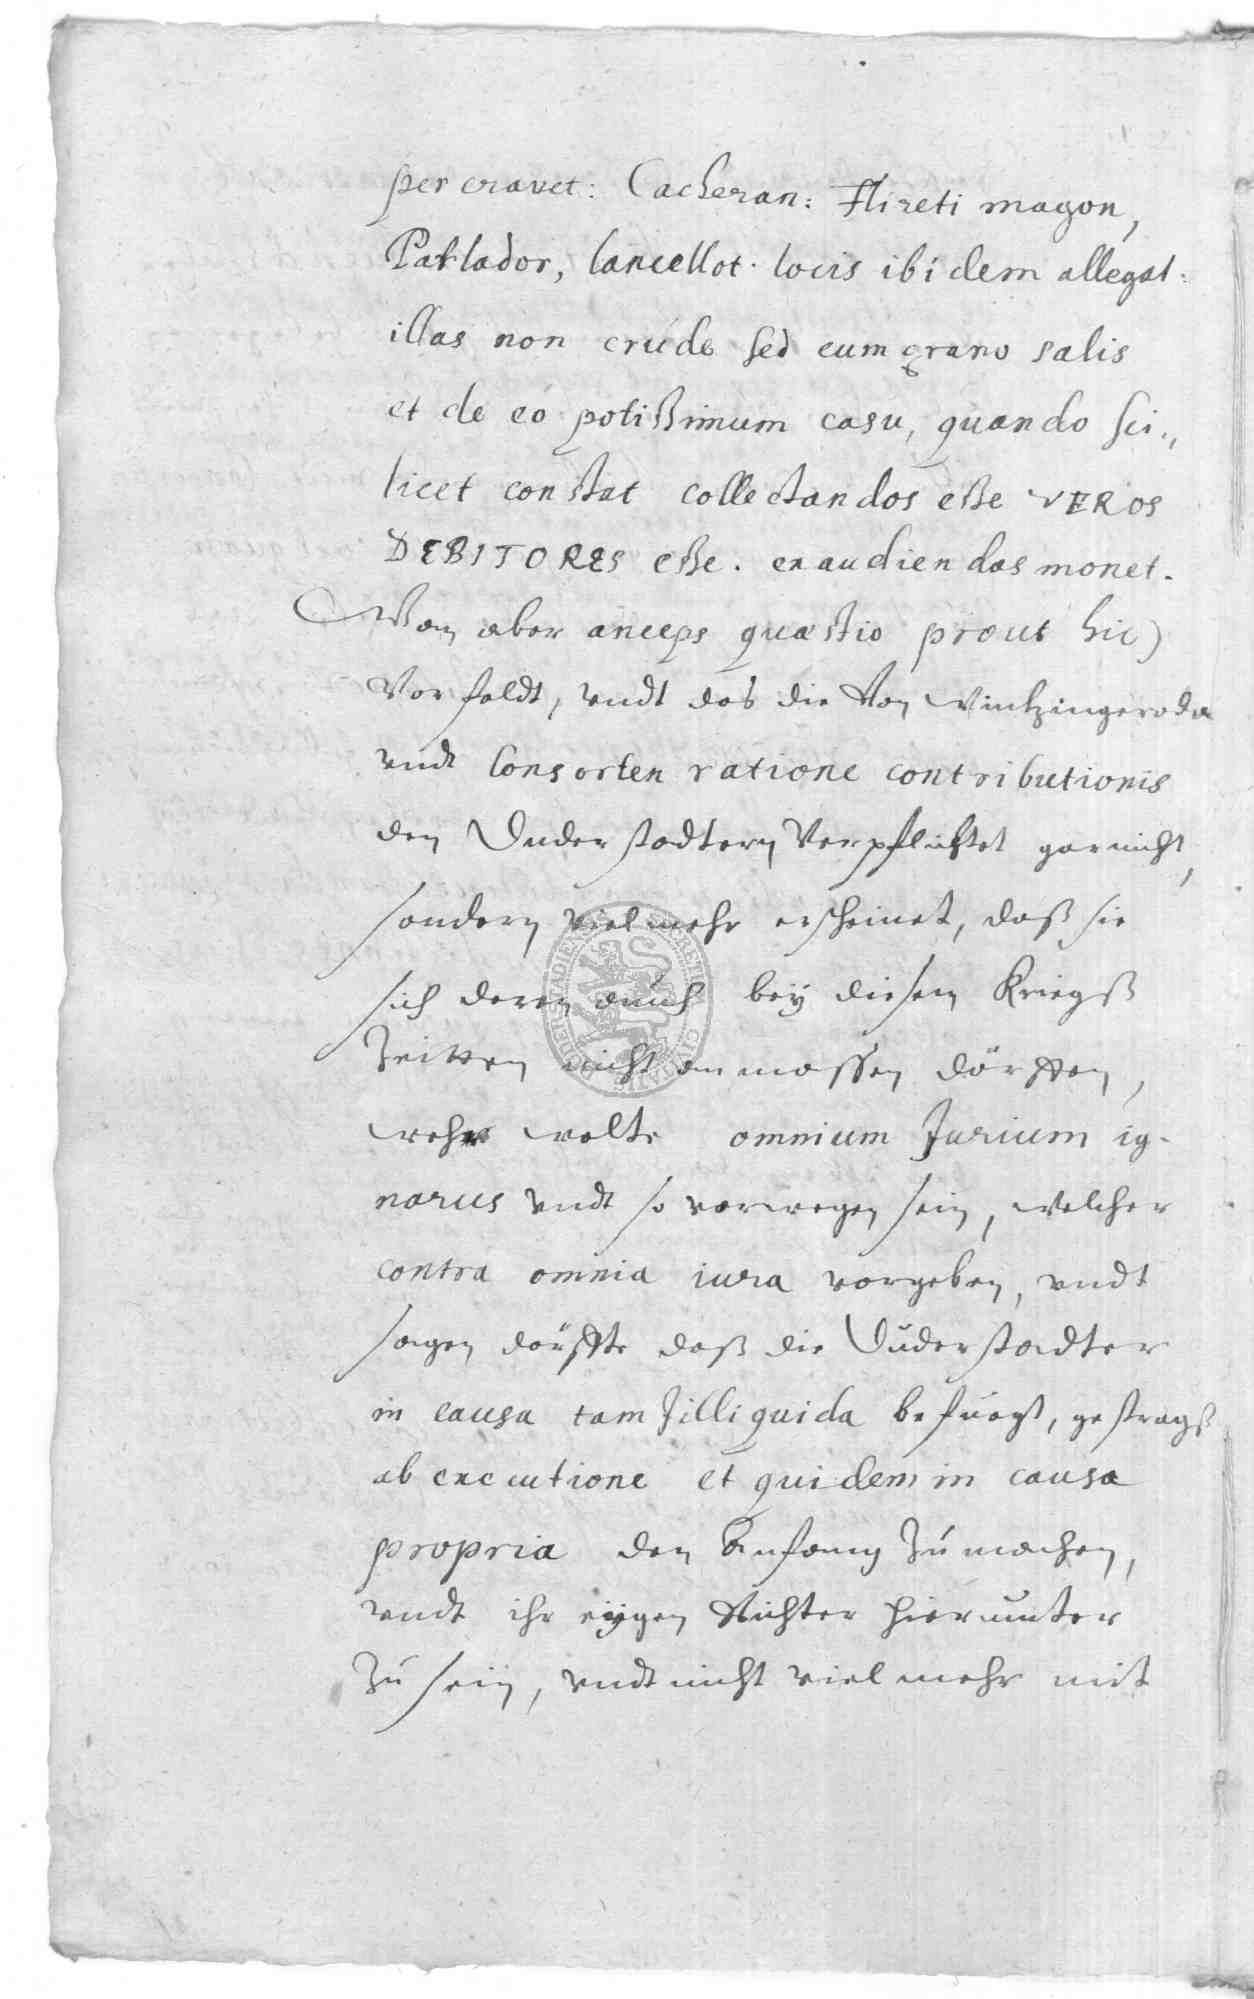 per cravet: Cacheran: Flireti magon,
Parlador, lancellot. locis ibidem allegat:
illas non crúde sed cum grano salis
et de eo potißimum casu, quando sci-,
licet constat collectandos eße VEROS
DEBITORES eße. exaudiendas monet.
Wan aber anceps quæstio prout hic)
Vorfeldt, undt das die Von Wintzingeroda
undt Consorten ratione contributionis
den Duderstadtern Verpflichtet gar nicht,
sondern viel mehr erscheinet, daß sie
sich deren auch bey diesen Kriegß
Zeitten nicht anmassen dörften,
wehr wolte omnium Jurium ig-
narus undt so verwegen sein, welcher
contra omnia iura vorgeben, undt
sagen dörffte daß die Duderstadter
in causa tam Jilliquida befúegt, gestragß
ab executione et quidem in causa
propria den Anfang zú machen,
undt ihr eÿgen Richter hierunter
Zú sein, undt nicht viel mehr mit